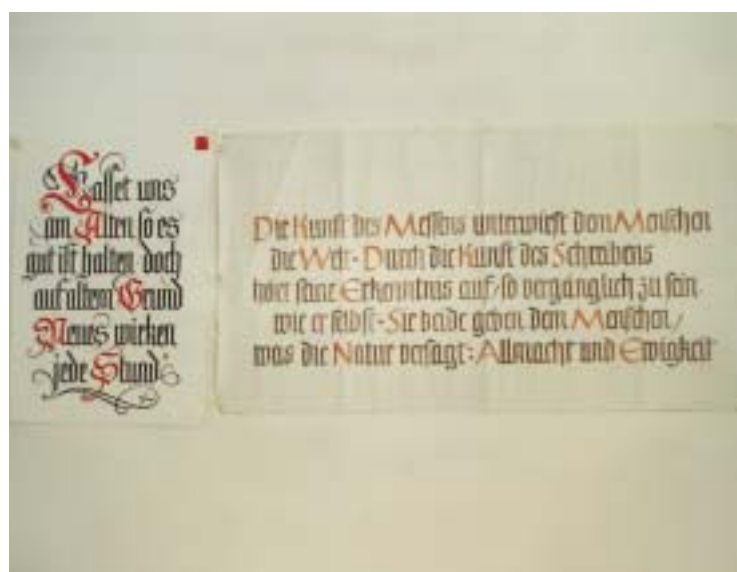 Lasset uns
am Alten so es
gut ist halten doch
auf altem Grund
Neues wirken
jede Stund
Die Kunst des Messens unterwirft dem Menschen
die Welt · Durch die Kunst des Schreibens
hört seine Erkenntnis auf, so vergänglich zu sein
wie er selbst · Sie beide geben dem Menschen,
was die Natur versagt: Allmacht und Ewigkeit